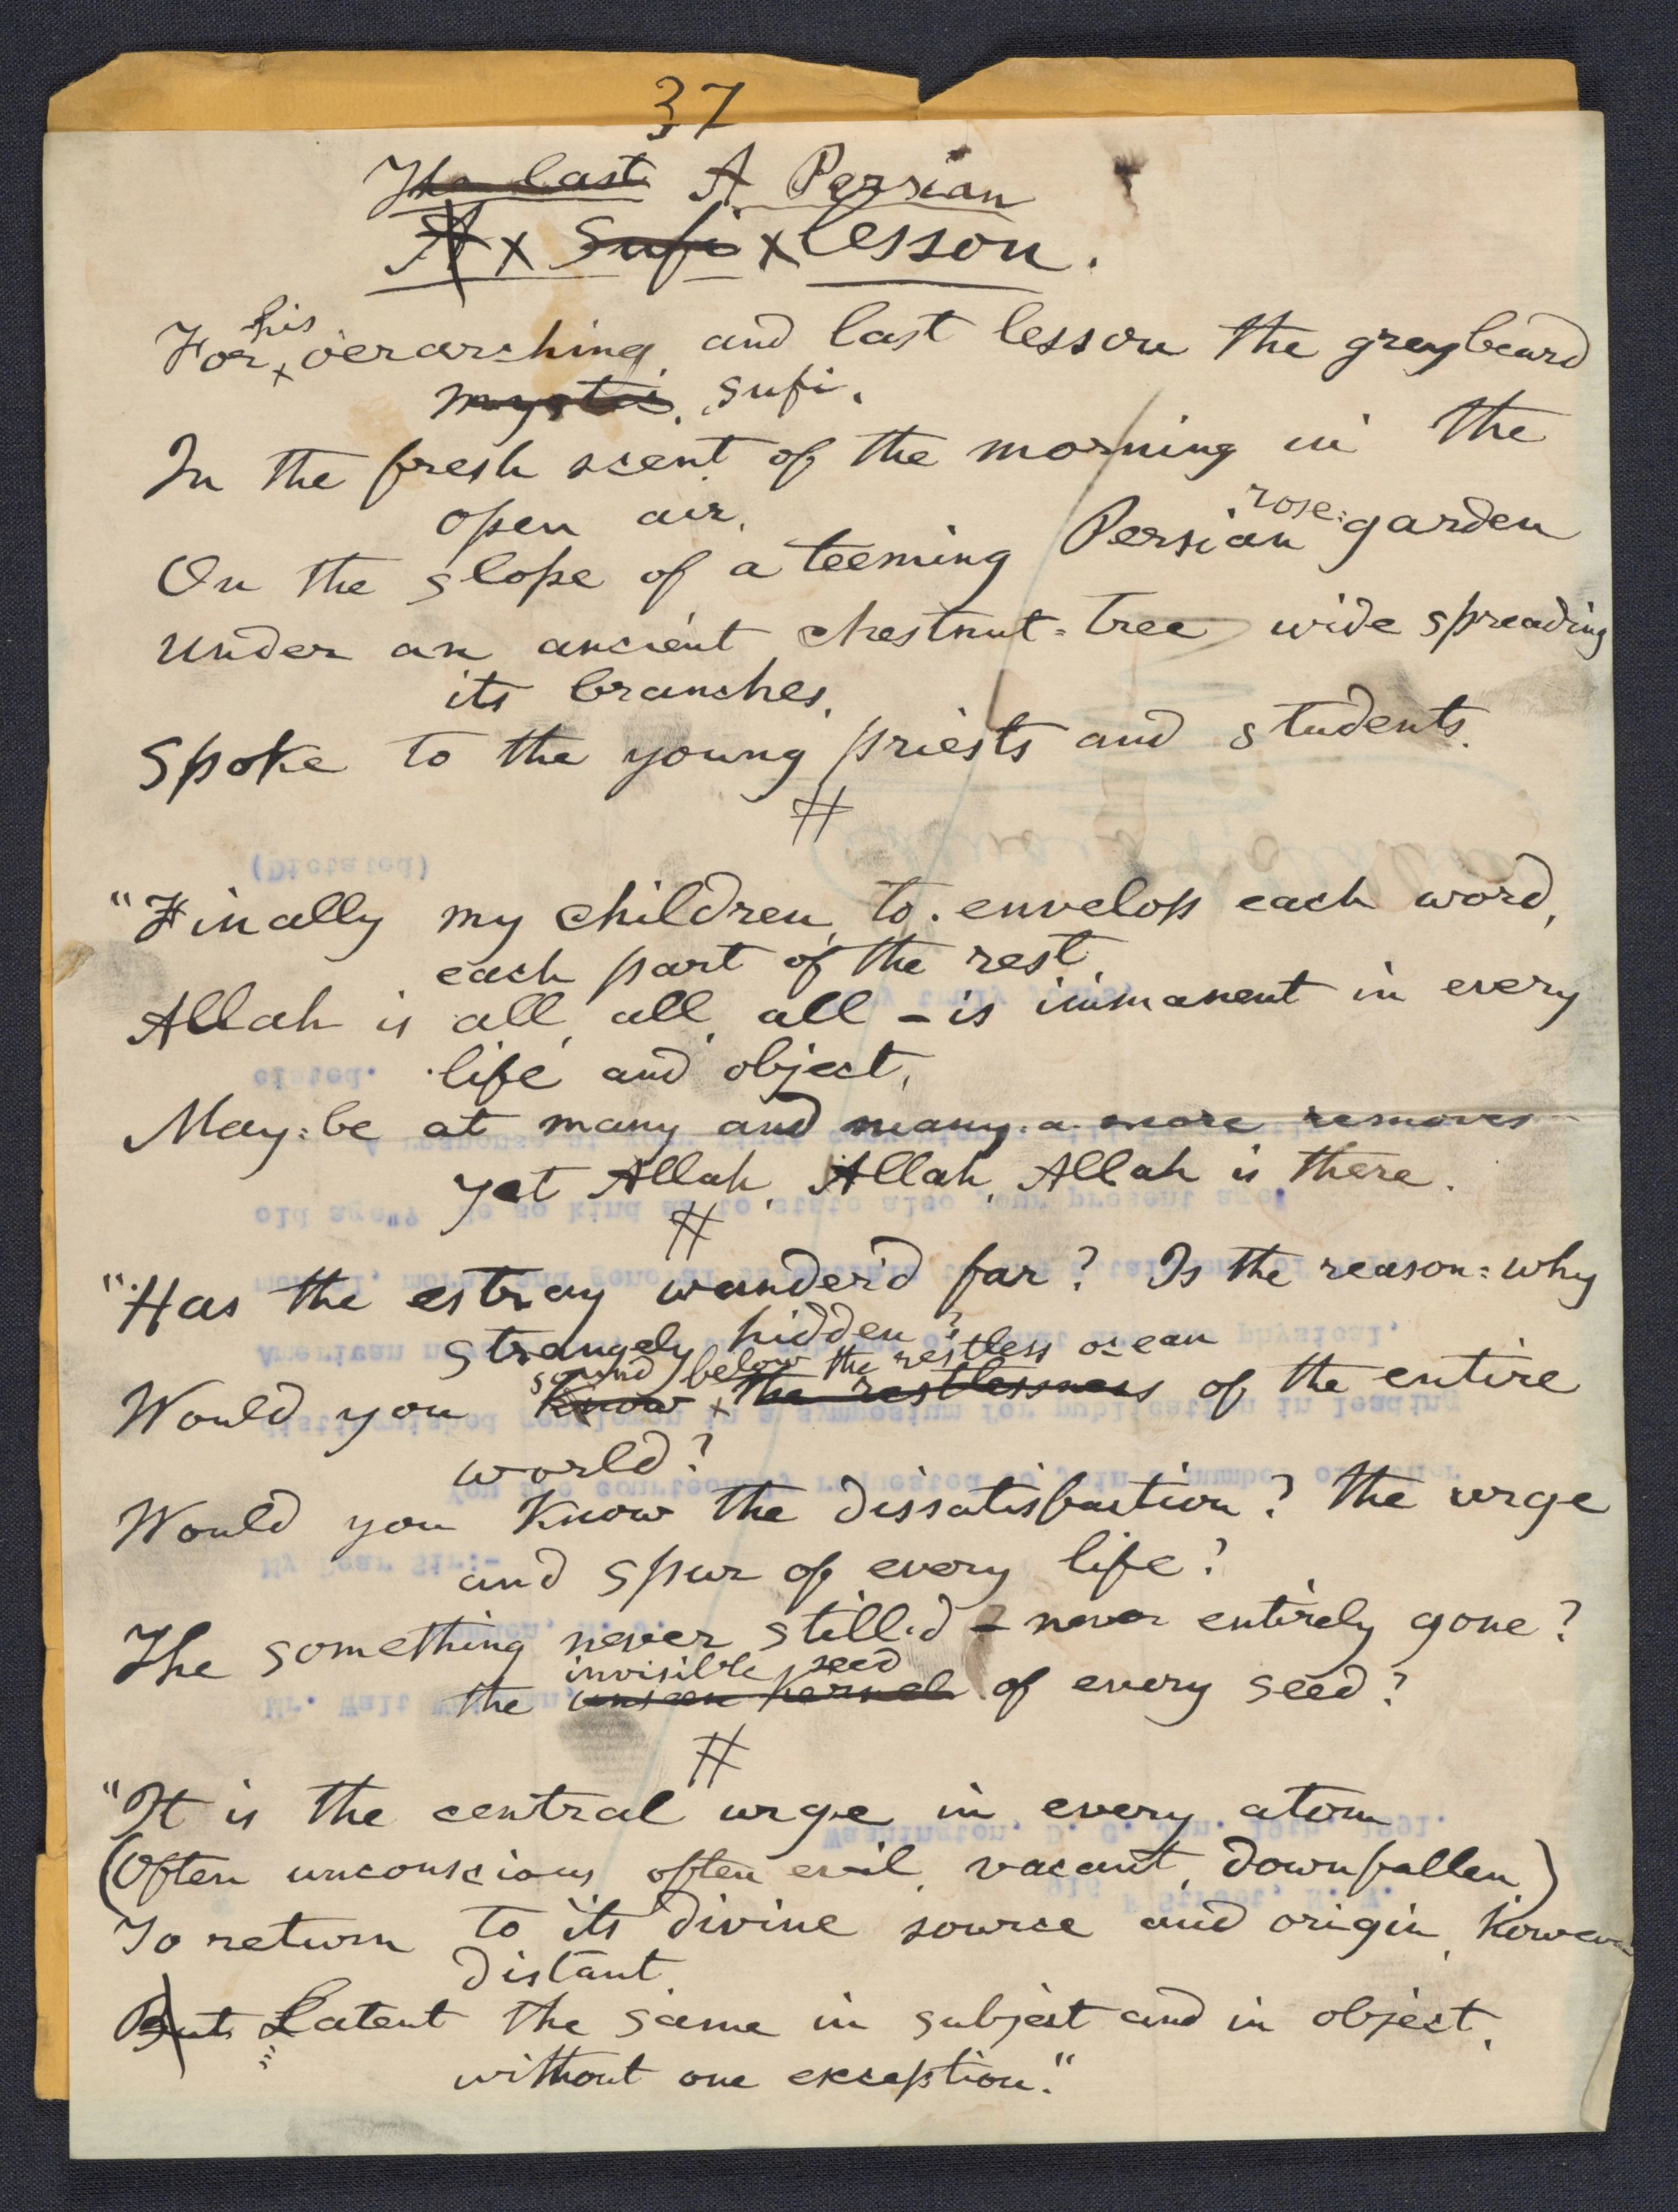 37
The last A Persian
A x Sufi x lesson.
his
For x o'erarching and last lesson the greybeard
mystic, sufi,
In the fresh scent of the morning in the
open air,
rose=
On the slope of a teeming Persian garden
Under an ancient chestnut=tree wide spreading
its branches,
Spoke to the young priests and students.
#
(Dictated)
"Finally my children, to envelop each word,
each part of the rest
Allah is all, all, all – is immanent in every
life and object,
May=be at many and many a more removes
yet Allah, Allah, Allah is there.
#
"Has the estray wander'd far? Is the reason=why
strangely hidden?
sound below the restless ocean
Would you know x the restlessness of the entire
world?
Would you know the dissatisfaction? the urge
and spur of every life?
The something never still'd – never entirely gone?
invisible seed
the unseen kernel of every seed?
#
"It is the central urge in every atom
(Often unconscious, often evil, vacant, downfallen,)
To return to its divine source and origin, however
distant,
But Latent the same in subject and in object,
without one exception."